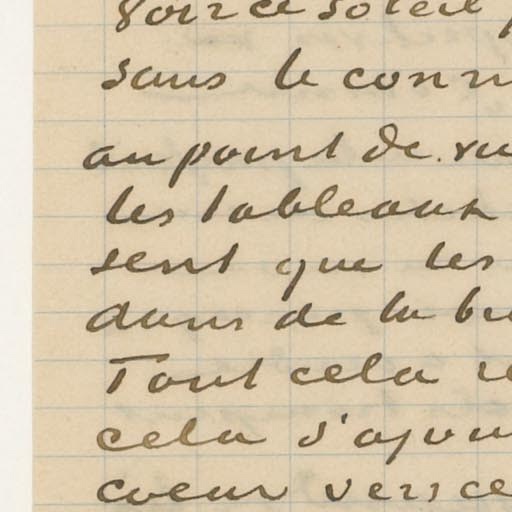 Voir ce soleil
sans le conn
au point de vu
les tableaux
sent que les
dans de la br
Tout cela re
cela s'ajou
coeur vers ce